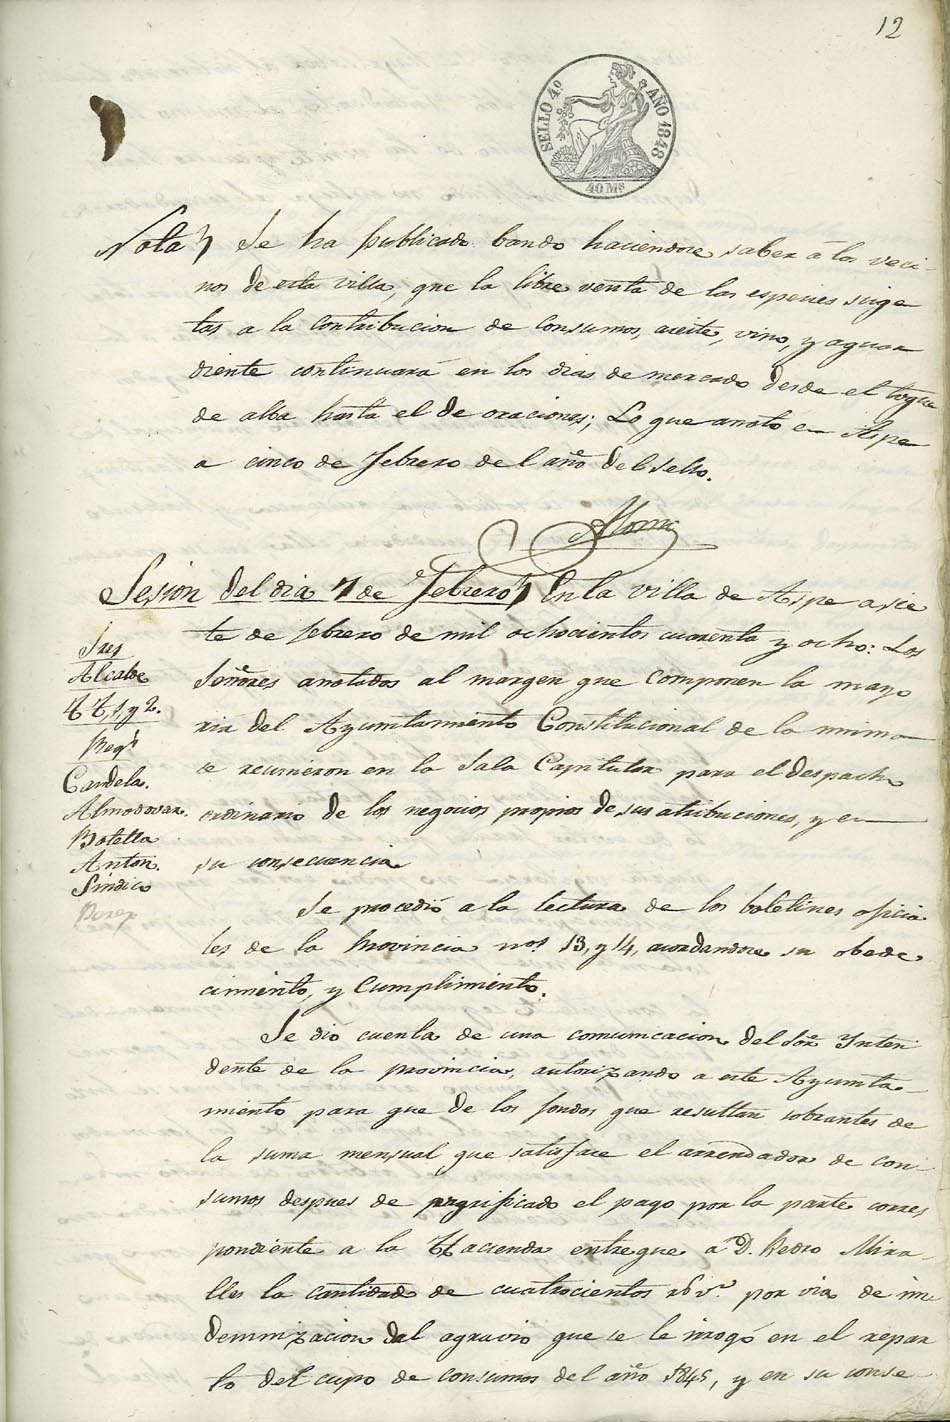 12
SELLO 4º AÑO 1848
40 Ms
Nota Se ha publicado bando haciendose saber á los veci-
nos de esta villa, que la libre venta de las especies suge
tas a la contribucion de consumos, aceite, vino, y aguar
diente continuará en los dias de mercado desde el toque
de alba hasta el de oraciones; Lo que anoto en Aspe
a cinco de Febrero del año del sello.
Sesion del dia 7 de Febrero En la villa de Aspe a sie
te de febrero de mil ochocientos cuarenta y ocho: Los
Señores anotados al margen que componen la mayo
ria del Ayuntamiento Constitucional de la misma
se reunieron en la Sala Capitular para el despacho
ordinario de los negocios propios de sus atribuciones, y en
su consecuencia
Sres
Alcalde
TT, 1, y 2.
Regs
Candela.
Almodovar.
Botella
Anton.
Sindico
Perez
Se procedió a la lectura de los boletines oficia
les de la Provincia nos 13, y 14, acordandose su obede
cimiento, y Cumplimiento.
Se dio cuenta de una comunicacion del Sor Inten
dente de la provincia, autorizando a este Ayunta-
miento para que de los fondos que resultan sobrantes de
la suma mensual que satisface el arrendador de con-
sumos despues de el pago por la parte corres
pondiente a la Hacienda entregue a D. Pedro Mira-
lles la cantidad de cuatrocientos rs vn por via de in
demnizacion del agravio que se le irrogó en el repar
to del cupo de consumos del año 1845, y en su conse-